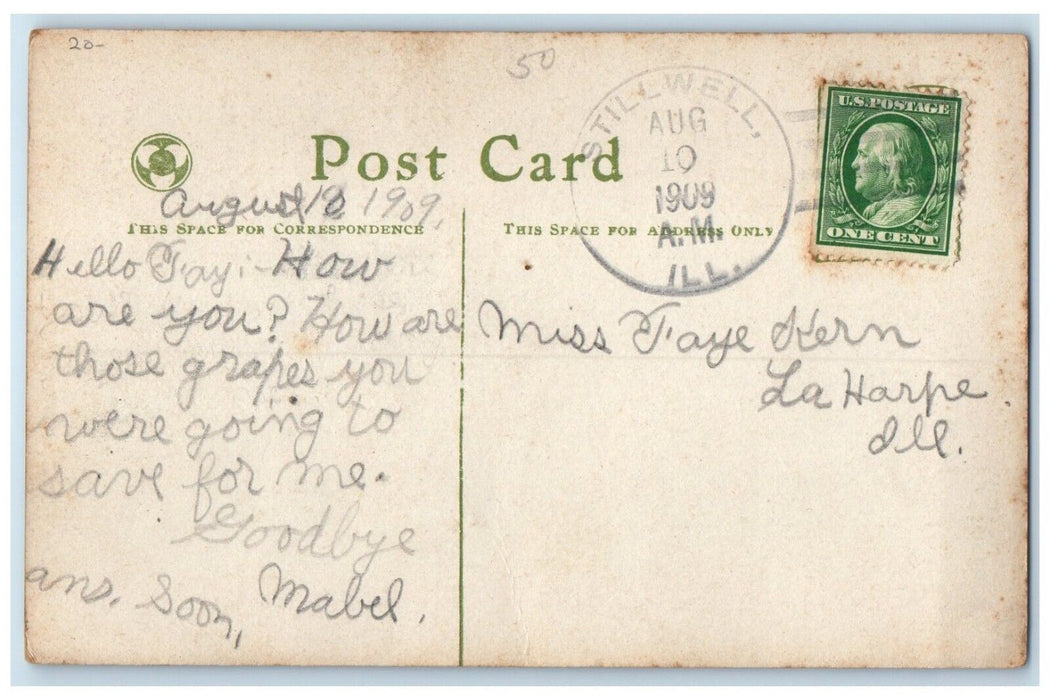 20-
50
STILLWELL,
AUG
10
1909
A.M.
ILL.
U.S. POSTAGE
ONE CENT
Post Card
THIS SPACE FOR CORRESPONDENCE
THIS SPACE FOR ADDRESS ONLY
August 10 1909,
Hello Fay:- How
are you? How are
those grapes you
were going to
save for me.
Goodbye
Mabel.
ans. Soon,
Miss Faye Kern
La Harpe
Ill.